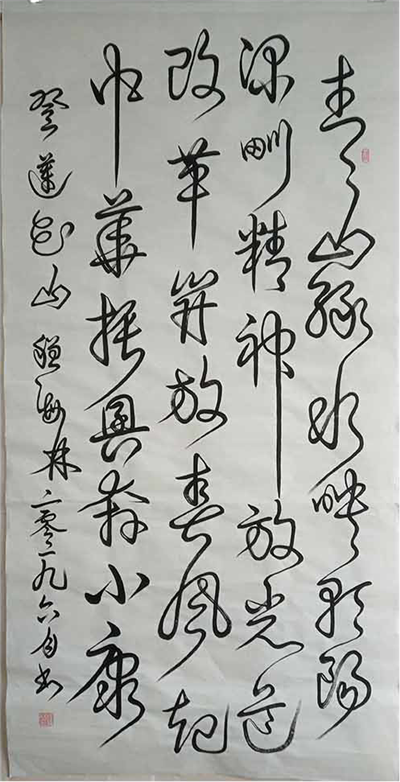 青山绿水映阳
深甽精神放光芒
改革开放春风起
中华振兴奔小康
登莲花山 海林二零一九六月书